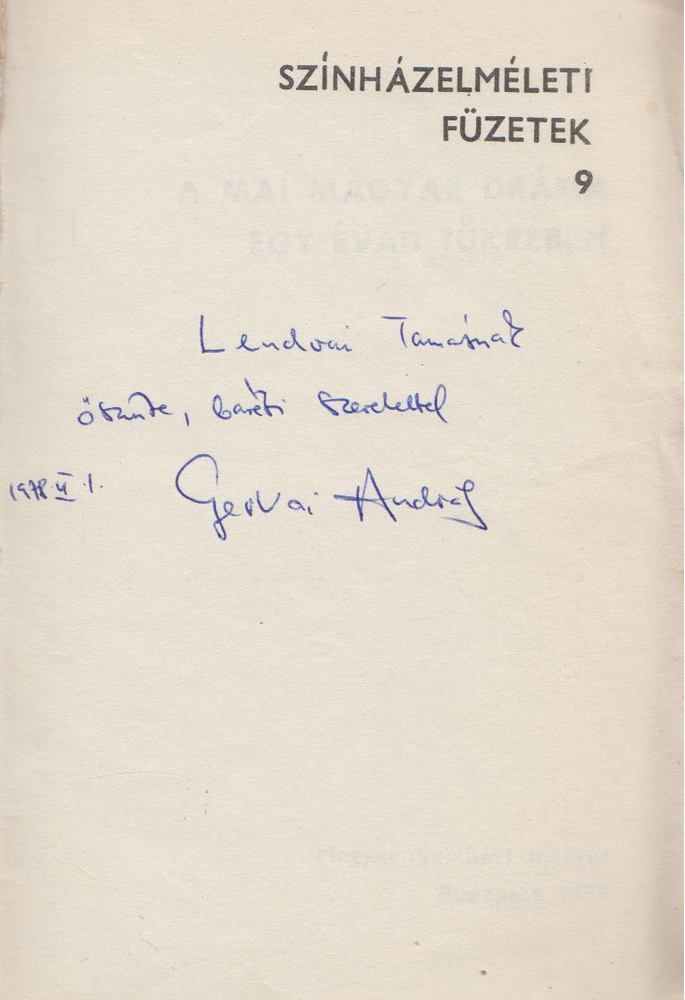 SZÍNHÁZELMÉLETI
FÜZETEK
9
A MAI MAGYAR DRÁMA
EGY ÉVAD TÜKRÉBEN
Lendvai Tamásnak
őszinte, baráti szeretettel
1978 II. 1. Gervai András
Magyar Színházi Intézet
Budapest, 1975